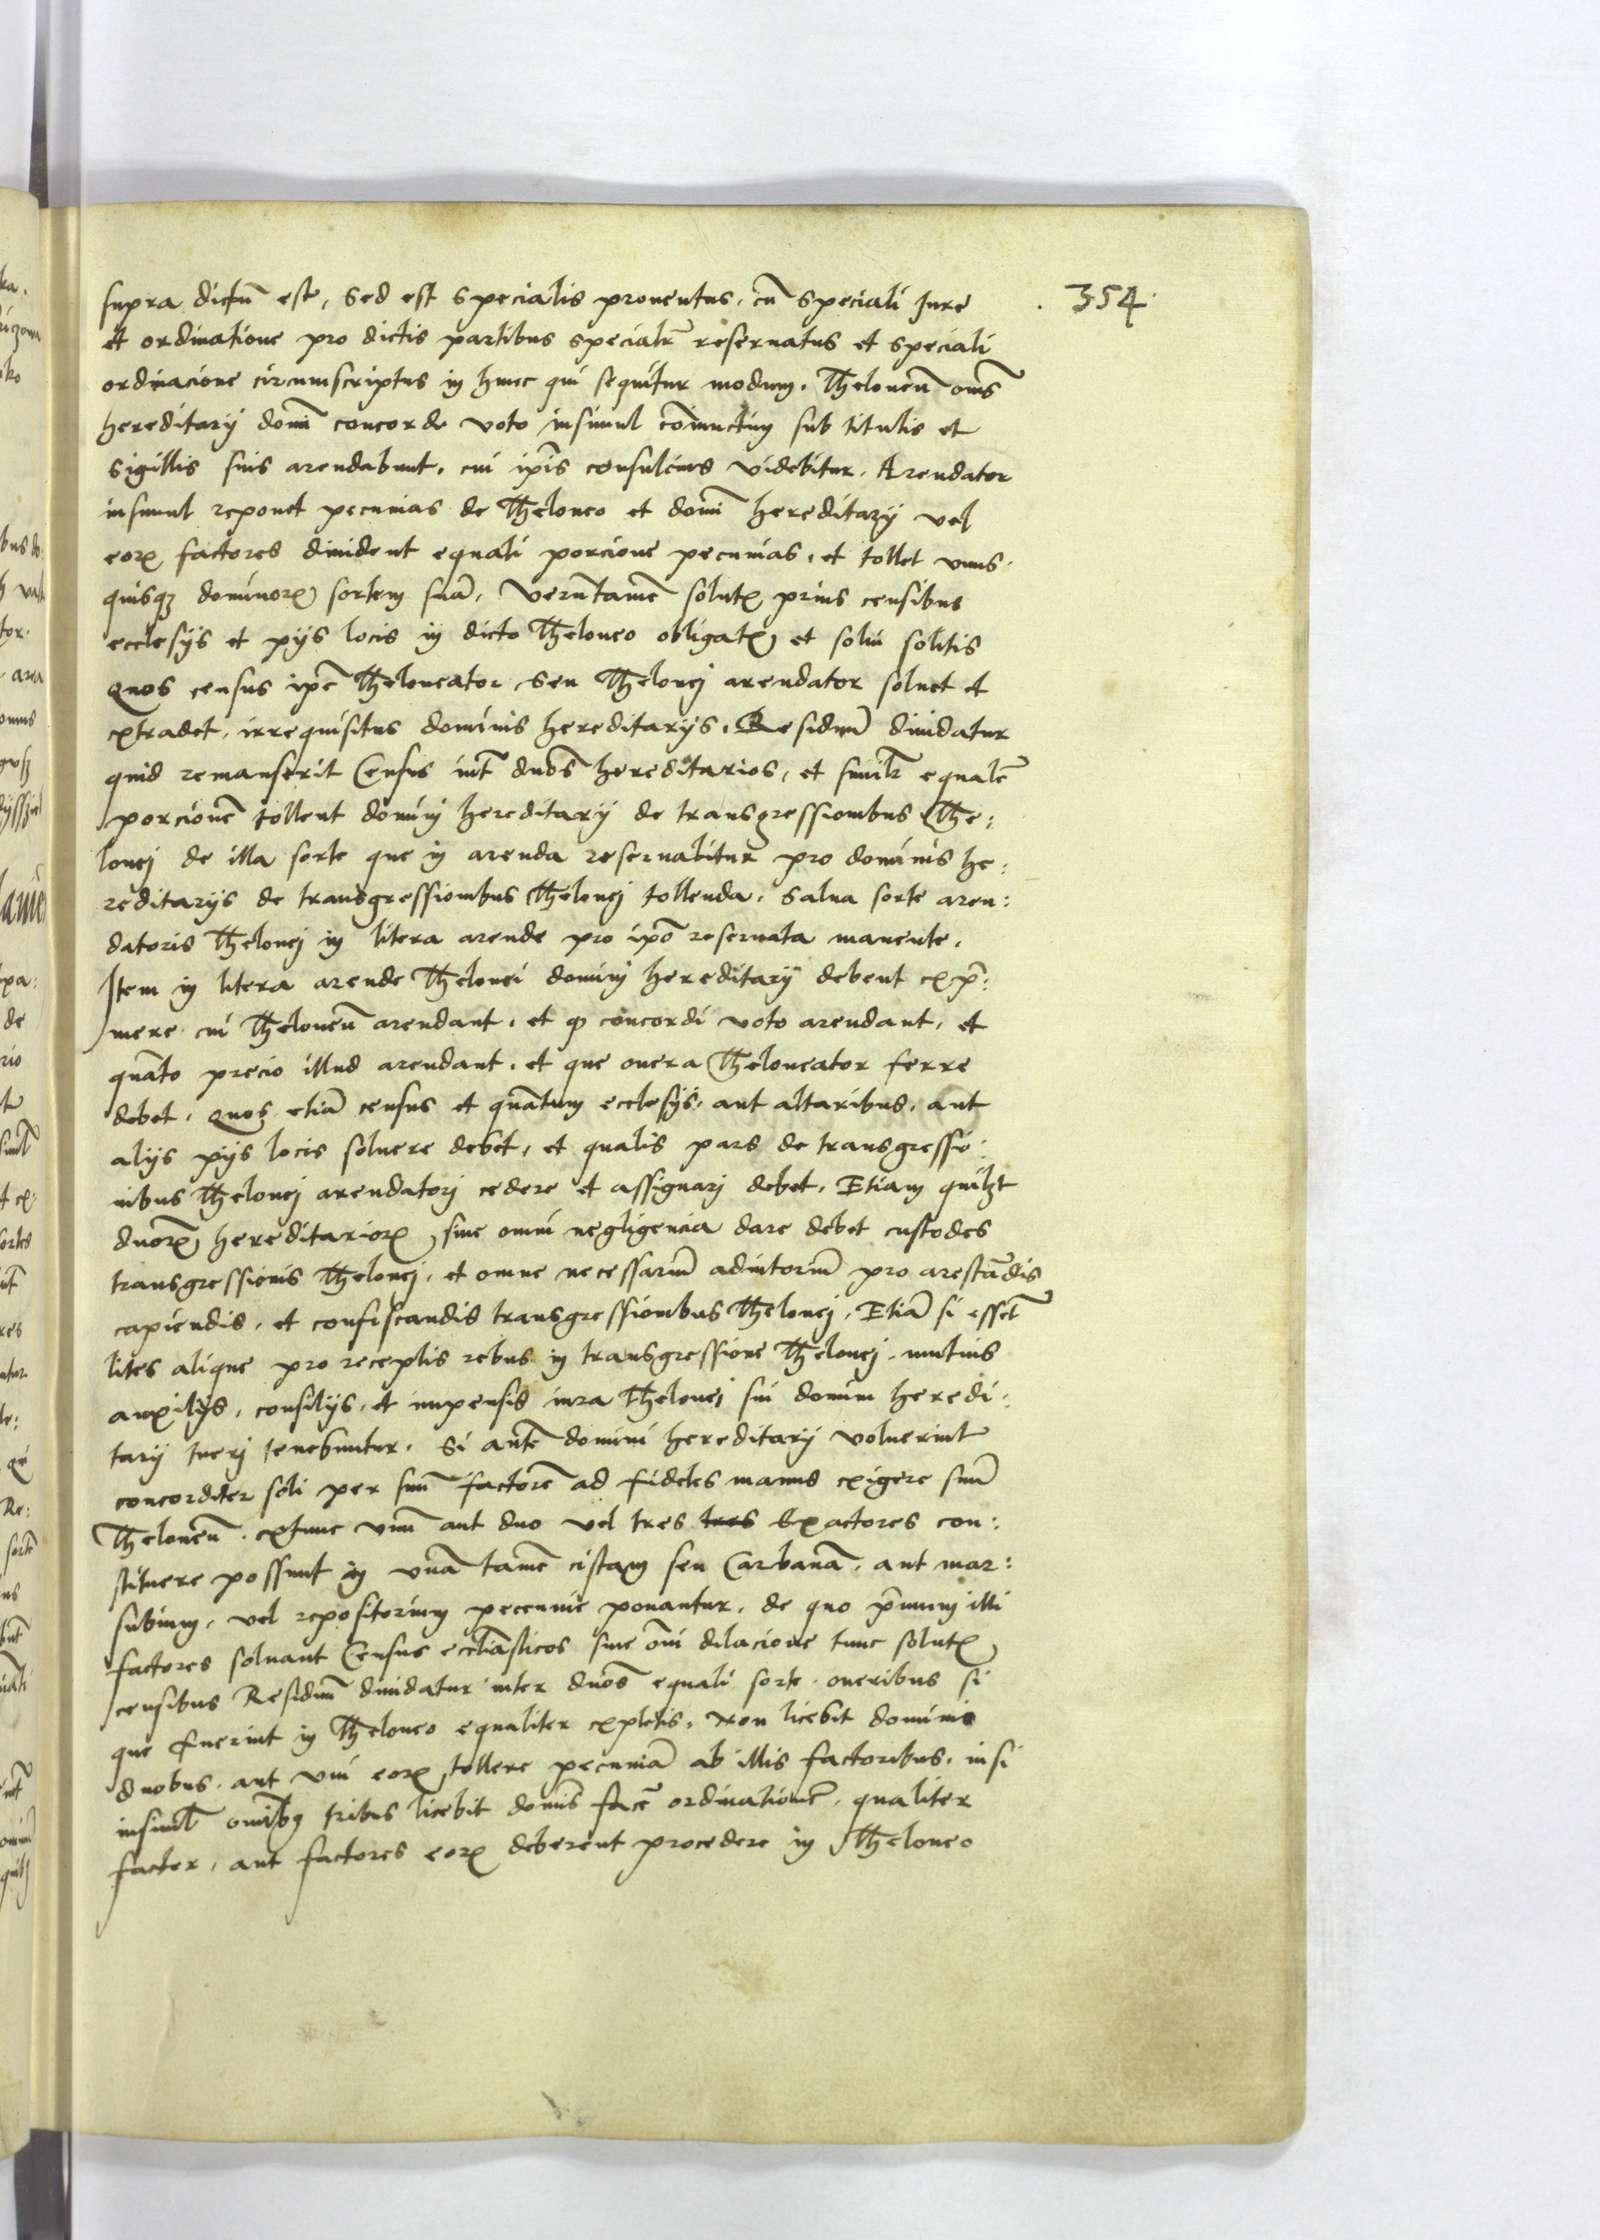 354
supra dictū est, Sed est specialis prouentus, cū speciali Jure
et ordinatione pro dictis partibus specialr̄ reseruatus et speciali
ordinacione circumscriptus in hunc qui sequitur modum. Theloneū om̄s
hereditarij domī concorde voto insimul cōiunctim sub titulis et
sigillis suis arendabunt, cui ip̄is consulcius videbitur. Arendator
insimul reponet pecunias de Theloneo et domī hereditarij vel
eoꝝ factores diuident equali porcione pecunias, et tollet vnus
quisqꝫ dominoꝝ sortem suā, Verūtamē solutꝭ prius censibus
ecclesijs et pijs locis in dicto Theloneo obligatꝭ et solui solitis
Quos census ip̄e Theloneator, Seu Thelonej arendator soluet et
extradet, irrequisitus dominis hereditarijs, Residuū diuidatur
quid remanserit Census int̄ dn̄os hereditarios, et similr̄ equalē
porcionē tollent dominj hereditarij de transgressionibus The:
lonej de illa sorte que in arenda reseruabitur pro dominis he:
reditarijs de transgressionibus Thelonej tollenda, Salua sorte aren:
datoris Thelonej in litera arende pro ip̄o reseruata manente.
Item in litera arende Thelonei dominj hereditarij debent exp̄:
mere cui Theloneū arendant, et ꝙ concordi voto arendant, et
quāto precio illud arendant, et que onera Theloneator ferre
debet, Quos etiā census et quātum ecclesijs, aut altaribus, aut
alijs pijs locis soluere debet, et qualis pars de transgressio:
nibus Thelonej arendatorj cedere et assignarj debet, Etiam quilꝫt
dn̄orꝝ hereditarioꝝ, sine omni negligencia dare debet custodes
transgressionis Thelonej, et omne necessariū adiutoriū pro arestādis
capiendis, et confiscandis transgressionibus Thelonej, Etiā si essēt
lites alique pro receptis rebus in transgressione Thelonej, mutuis
auxilijs, consilijs, et impensis iura Thelonej sui domini heredi:
tarij tuerj tenebuntur. Si autē domini hereditarij voluerint
concorditer soli per suū factorē ad fideles manus exigere suū
Theloneū, extunc vnū aut duo vel tres tres Exactores con:
stituere possunt in vnā tamē cistam seu Carbanā, aut mar:
subium, vel repositorium pecunnie ponantur, de quo p̄mum illi
factores soluant Census eccliāsticos sine om̄i dilacione tunc solutꝭ
censibus Residuū diuidatur inter dn̄os equali sorte oneribus si
que fuerint in Theloneo equaliter expletis, Non licebit dominis
duobus, aut vni eoꝝ, tollere pecuniā ab illis factoribus, nisi
insiml̄ omībꝫ tribus licebit domīs facē ordinationē, qualiter
factor, aut factores eoꝝ deberent procedere in Theloneo